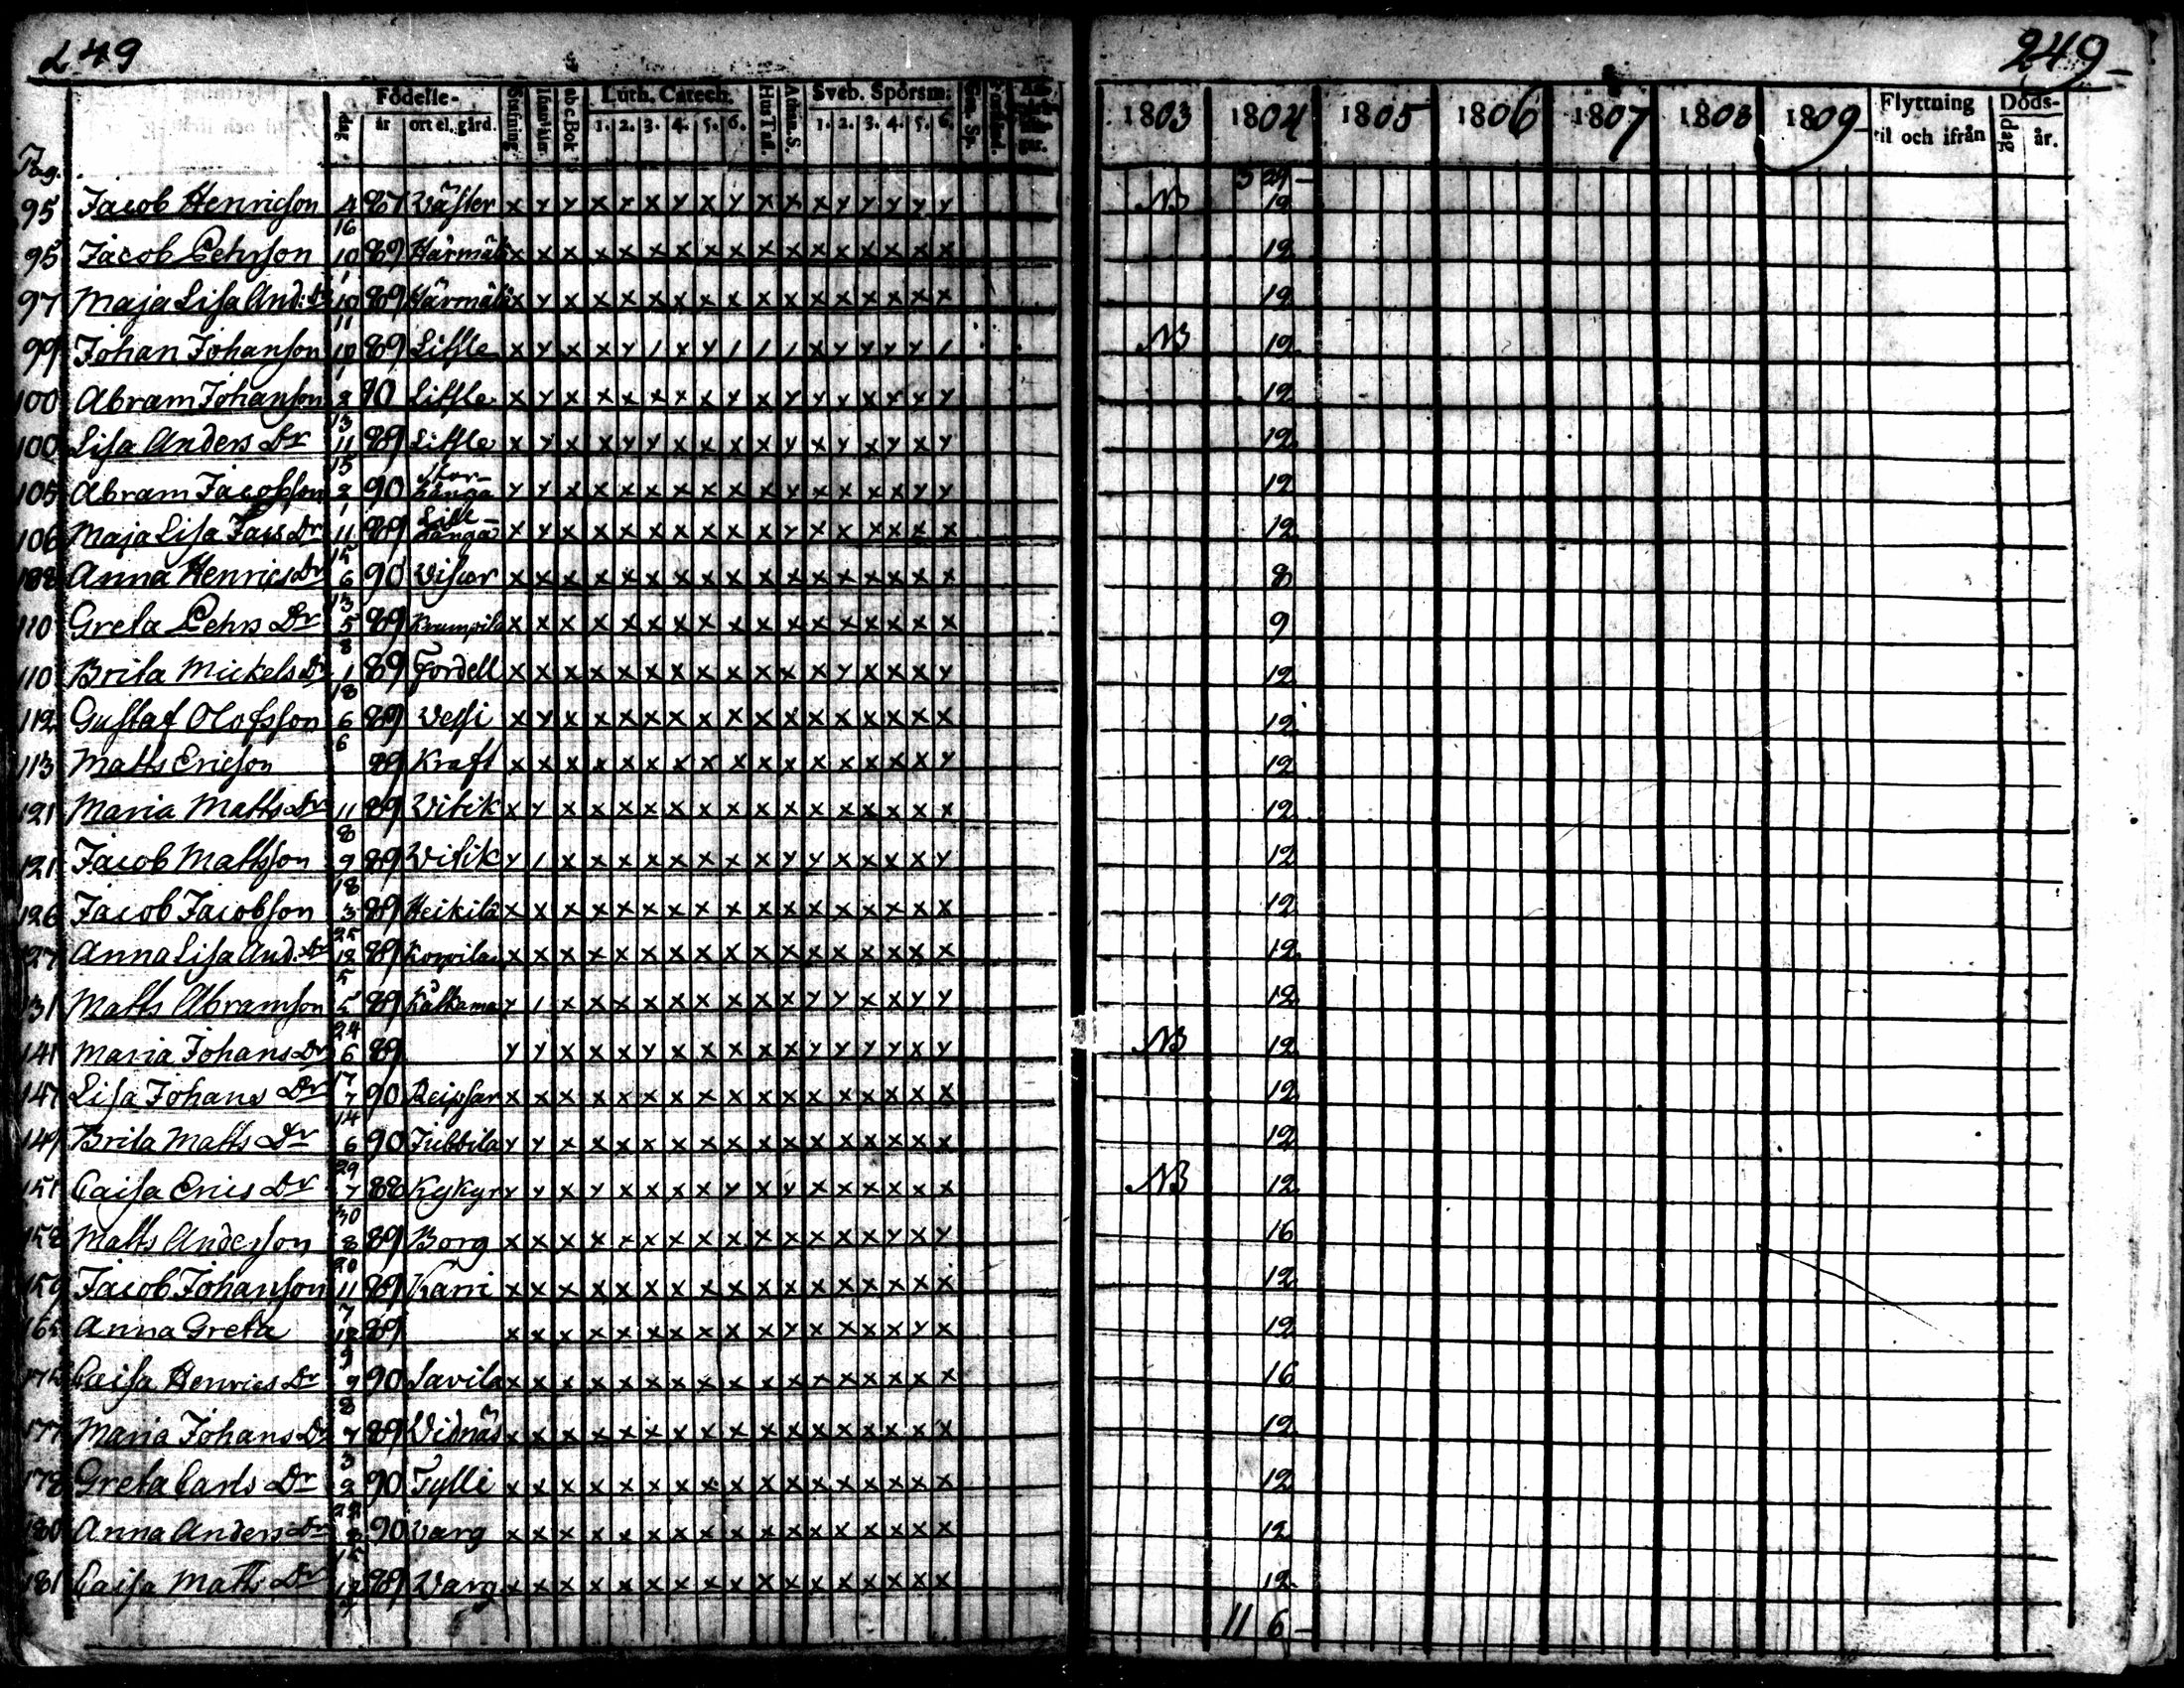 249
249
Födelse- Luth. Catech. Hus Tafl. Athan. S. Sveb. Spörsm. 1803 1804 1805 1806 1807 1808 1809 Flyttning Döds-
dag år ort el. gård. Stafning ab c Bok 1. 2. 3. 4. 5. 6. 1. 2. 3. 4. 5. 6. til och ifrån dag år.
Pag. 3 24 -
95 Jacob Henricson 4 87 Väster x y y x x x y x y x x x y y y y y NB 12
16
95 Jacob Pehrson 10 89 Härmälä x x x x x x x x x x x x x x x x x 12
1
97 Maja Lisa And: Dr 10 89 Härmälä x y x x x x x x x x x x x x x x x 12
11
99 Johan Johanson 10 89 Lissle x y x x y / x y / / / x y x y y / NB 12
1
100 Abram Johanson 2 90 Lissle x y x x x x x x y x y y x x y x y 12
13
100 Lisa Anders Dr 11 89 Lissle x y x x y y x x x x y x y x y x y 12
15
105 Abram Jacobsson 2 90 Stor-Långa y y x x x x x x x x y x x x x y y 12
1
106 Maja Lisa Jacs Dr 11 89 Lill-Långa x y x x x x x x x x y x x x x x x 12
15
108 Anna Henrics Dr 6 90 Viscar x x x x x x x x x x x x x x x x x 8
13
110 Greta Pehrs Dr 5 89 Krumpila x x x x x x x x x x x x x x x x x 9
8
110 Brita Mickels Dr 1 89 Fordell x x x x x x x x x x x x y x x x y 12
18
112 Gustaf Olofsson 6 89 Vessi x y x x x x x x x x x x x x x x x 12
6
113 Matts Ericson 89 Kraft x x x x x x x x x x x x x x x x y 12
121 Maria Matts Dr 11 89 Vitik x y x x x x x x x x x x x x x x x 12
8
121 Jacob Mattsson 9 89 Vitik y / x x x x x x x x y y x x x x y 12
18
126 Jacob Jacobson 3 89 Heikilä x x x x x x x x x x x x x x x x x 12
25
127 Anna Lisa And. Dr 12 89 Korpila x x x x x x x x x x x x x x x x x 12
5
131 Matts Abramson 5 89 Kålkama y / x x x x x x x x x y y x x y y 12
24
141 Maria Johans Dr 6 89 y y x x x y x x x x x y y y y x y NB 12
17
147 Lisa Johans Dr 7 90 Reipsar x x x x x x x x x x x x x x x x x 12
14
149 Brita Matts Dr 6 90 Jubbila y y x x x x x x x x x x x x x x x 12
29
151 Caisa Erics Dr 7 88 Kykyr y y x y x x x x y x y x x x x x x NB 12
30
158 Matts Anderson 8 89 Borg x x x x x x x x x x x x x x y x y 16
20
159 Jacob Johanson 11 89 Karri x x x x x x x x x x x x x x x x x 12
7
165 Anna Greta 12 89 x x x x x x x x x x y x x x x y x 12
9
175 Caisa Henrics Dr 9 90 Savila x x x x x x x x x x x x x x x x x 16
8
177 Maria Johans Dr 7 89 Vidnäs x x x x x x x x x x x x x x x x x 12
3
178 Greta Carls Dr 2 90 Tylli x x x x x x x x x x x x x x x x x 12
22
180 Anna Anders Dr 8 90 Varg x x x x x x x x x x x x x x x x x 12
15
181 Caisa Matts Dr 12 89 Varg x x x x x x x x x x x x x x x x x 12
11 6 -